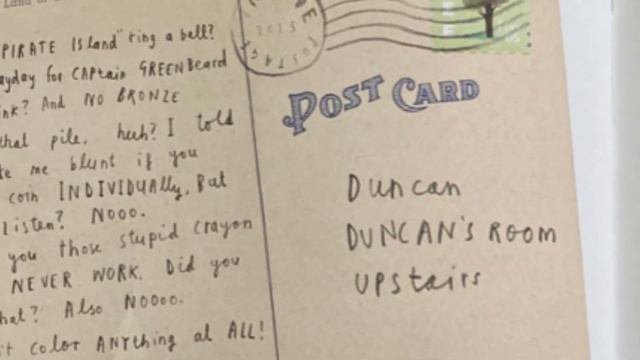 Land of
PIRATE ISland" ring a bell?
ayday for CAPtain GREENBeard
ink? And NO BRONZE
that pile, huh? I told
te me blunt if you
coin INDIVIDUAlly, But
listen? NOOO.
you those stupid crayon
NEVER WORK. Did you
hat? Also NOOOO.
t color ANYthing at ALL!
2015
POST CARD
Duncan
DUNCAN'S ROOM
UPstairs